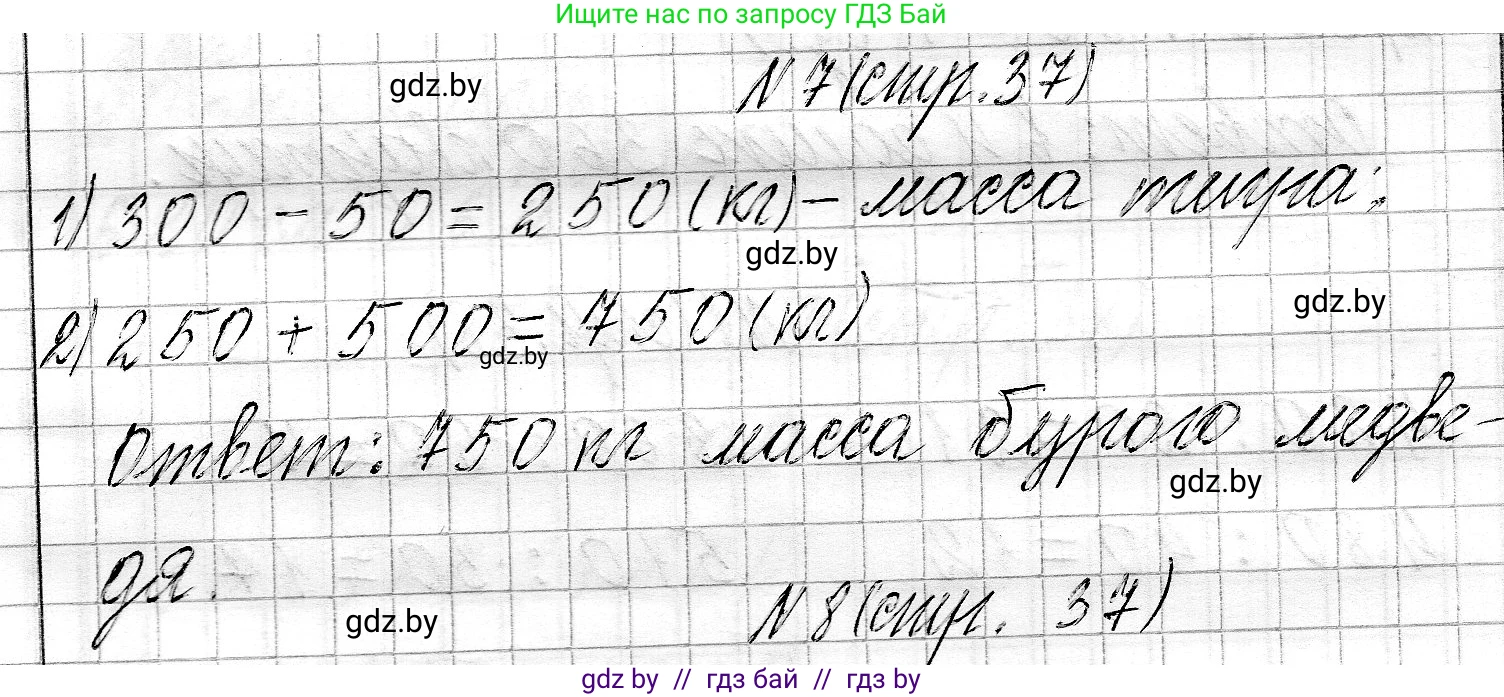 Ищите нас по запросу ГДЗ Бай
gdz.by
N 7 (стр. 37)
1) 300 - 50 = 250 (кг) - масса тигра;
gdz.by
gdz.by
2) 250 + 500 = 750 (кг)
gdz.by
Ответ: 750 кг масса бурого медве-
gdz.by
дя.
gdz.by
N 8 (стр. 37)
gdz.by // гдз бай // гдз by